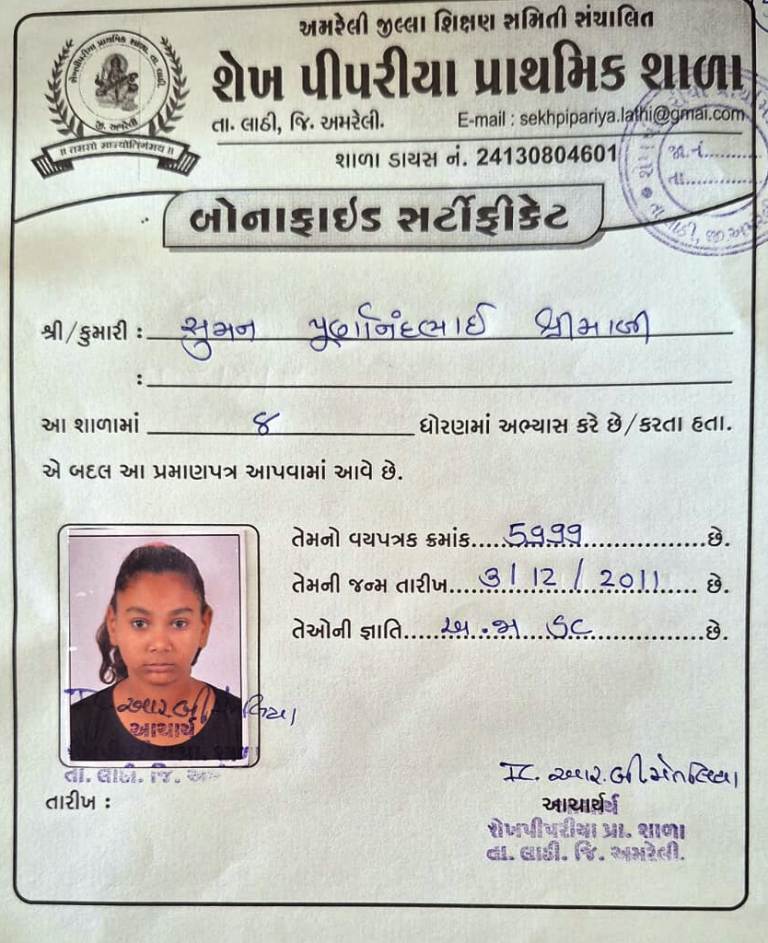 અમરેલી જીલ્લા શિક્ષણ સમિતી સંચાલિત
શેખ પીપરીયા પ્રાથમિક શાળા
તા. લાઠી, જિ. અમરેલી. E-mail : sekhpipariya.lathi@gmai.com
શાળા ડાયસ નં. 24130804601
જી. અમરેલી
॥ તમસો મા જ્યોતિર્ગમય ॥
જા.નં.
તા.
બોનાફાઇડ સર્ટીફીકેટ
શ્રી/કુમારી : સુમન પૂર્ણાનંદભાઈ શ્રીમાળી
:
આ શાળામાં ૪ ધોરણમાં અભ્યાસ કરે છે/કરતા હતા.
એ બદલ આ પ્રમાણપત્ર આપવામાં આવે છે.
તેમનો વયપત્રક ક્રમાંક.....5999.....છે.
તેમની જન્મ તારીખ.....3/12/2011.....છે.
તેઓની જ્ઞાતિ.....અ.જા SC.....છે.
આચાર્ય
તા. લાઠી. જિ.
તારીખ :
આચાર્ય
શેખપીપરીયા પ્રા. શાળા
તા. લાઠી. જિ. અમરેલી.